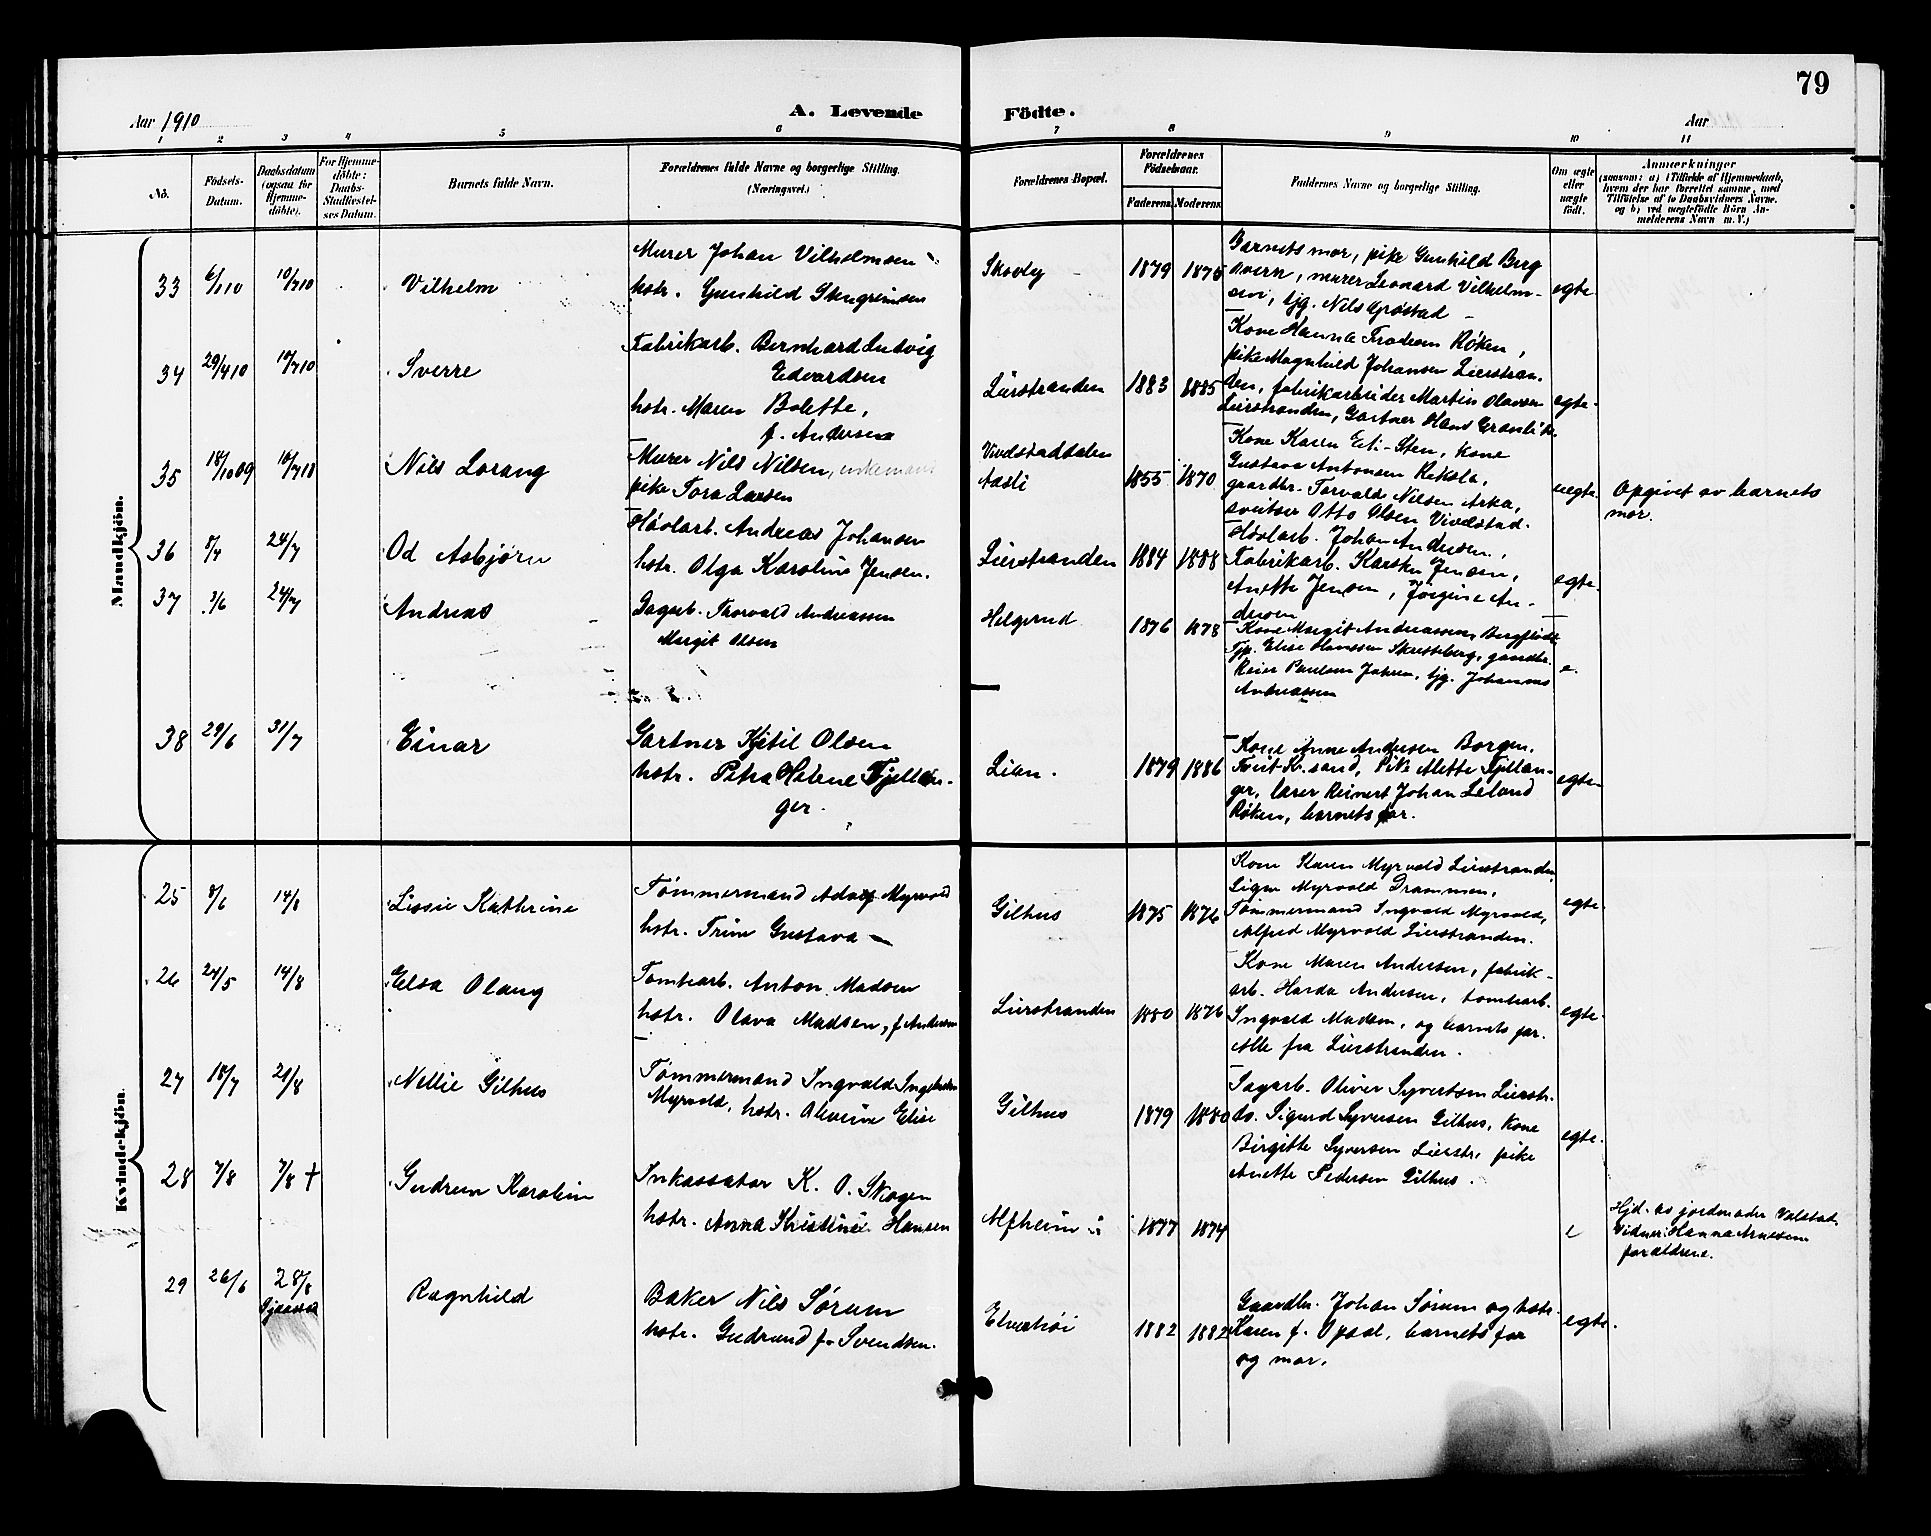 79
Aar 1910
A. Levende
Födte.
Aar
1 2 3 4 5 6 7 8 9 10 11
No.
Födsels-
Datum.
Daabsdatum
(ogsaa for
Hjemme-
döbte).
For Hjemme-
döbte:
Daabs-
Stadfæstel-
ses Datum.
Barnets fulde Navn.
Forældrenes fulde Navne og borgerlige Stilling.
(Næringsvei.)
Forældrenes Bopæl.
Forældrenes
Födselsaar.
Faderens. Moderens.
Faddernes Navne og borgerlige Stilling.
Om ægte
eller
uægte
födt.
Anmærkninger
(saasom: a) i Tilfælde af Hjemmedaab,
hvem der har forrettet samme, med
Tilföielse af to Daabsvidners Navne,
og b) ved uægtefödte Börn An-
melderens Navn m. V.)
Mandkjön.
33 6/1 10 10/7 10 Vilhelm
Murer Johan Vilhelmsen
hstr. Gunhild Stengrimsen
Skovly 1879 1875
Barnets mor, pike Gunhild Berg
Overn, murer Leonard Vilhelm-
sen, tjg. Nils Grøstad
egte
34 29/4 10 10/7 10 Sverre
Fabrikarb. Bernhard Ludvig
Edvardsen
hstr. Maren Bolette,
f. Andersen
Lierstranden 1883 1885
Kone Hanna Frodesen Røken,
pike Magnhild Johansen Lierstran-
den, fabrikarbeider Martin Olavsen
Lierstranden, Gartner Hans Granli
egte.
35 18/10 09 10/7 10 Nils Lorang
Murer Nils Nilsen, enkemand
pike Tora Larsen
Vivelstaddalen
Aasli 1855 1870
Kone Karen Eri-Sten, kone
Gustava Antonsen Reksla,
gaardbr. Torvald Nilsen Aska,
sveitser Otto Olsen Vivelstad.
uegte
Opgivet av barnets
mor.
36 8/4 24/7 Od Asbjørn
Høvlarb. Andreas Johansen
hstr. Olga Karoline Jensen.
Lierstranden 1884 1888
Høvlarb. Johan Andersen,
Fabrikarb. Karsten Jensen,
Anette Jensen, Jørgine An-
dersen
egte.
37 3/6 24/7 Andreas
Dagarb. Thorvald Andreassen
Margit Olsen
Helgerud 1876 1878
Kone Margit Andreassen, Bergflødt
Tjp. Elise Hanssen Skretteberg, gaardbr.
Reier Paulsen Jahren, tjg. Johannes
Andreassen
e.
38 29/6 31/7 Einar
Gartner Kjetil Olsen
hstr. Petra Helene Fjellan-
ger.
Lien. 1879 1886
Kone Anne Andersen Borgen.
Kr.sand, Pike Alette Fjellan-
ger, lærer Reinert Johan Leland
Røken, barnets far.
egte
Kvindekjön.
25 8/6 14/8 Lissie Kathrine
Tømmermand Adolf Myrvold
hstr. Trine Gustava
Gilhus 1875 1876
Kone Karen Myrvold Lierstranden
Signe Myrvold Drammen,
Tømmermand Ingvald Myrvold,
Alfred Myrvold Lierstranden.
egte.
26 24/5 14/8 Elsa Olaug
Tomtearb. Anton Madsen
hstr. Olava Madsen, f. Andersen
Lierstranden 1880 1876
Kone Maren Andersen, fabrik-
arb. Harda Andersen, tomtearb.
Ingvald Madsen, og barnets far.
Alle fra Lierstranden.
egte.
27 18/7 21/8 Nellie Gilhus
Tømmermand Ingvald Ingebretsen
Myrvold, hstr. Oliverine Elise
Gilhus 1879 1880
Sagarb. Oliver Syvertsen Lierstr.
do. Sigurd Syversen Gilhus, Kone
Birgitte Syversen Lierstr, pike
Anette Pedersen Gilhus.
egte.
28 7/8 7/8 † Gudrun Karoline
Inkassator K. O. Skogen
hstr. Anna Kristine Hansen
Alfheim 1877 1874
e
Hjd. av jordemoder Valstad.
Vidner: Hanna Arnesen
forældrene.
29 26/6 28/8 Ragnhild
Baker Nils Sørum
hstr. Gudrund f. Svendsen.
Elverhøi 1882 1882
Gaardbr. Johan Sørum og hstr.
Karen f. Opsal, barnets far
og mor.
egte.